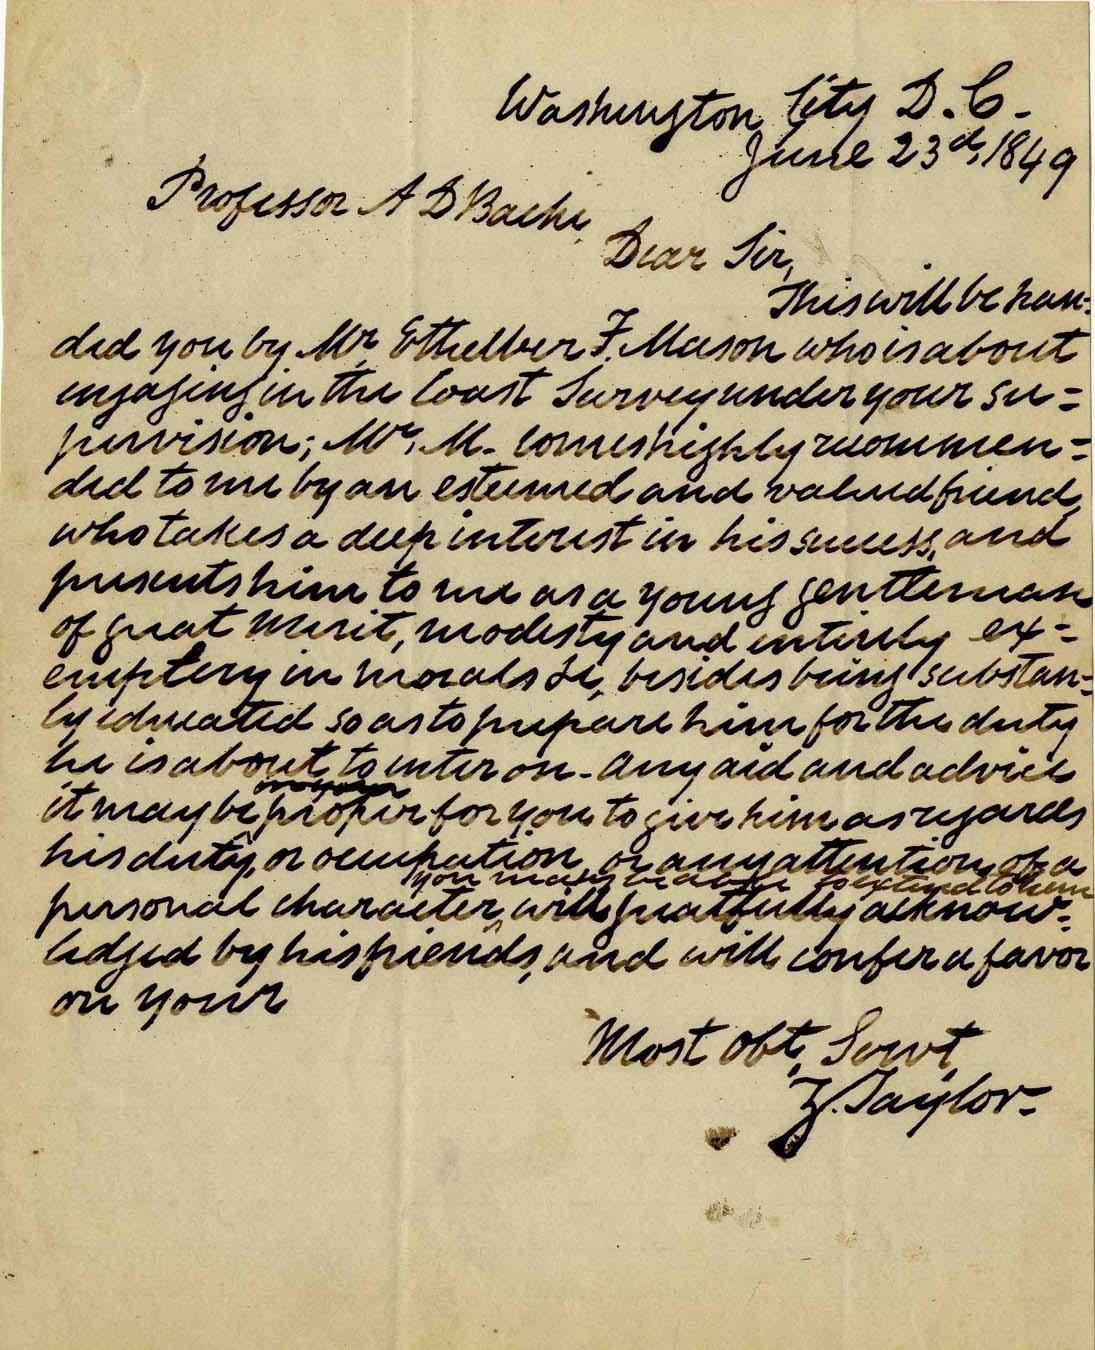 Washington City D. C.
June 23d, 1849
Professor A D Bache,
Dear Sir,
This will be han=
ded you by Mr Ethelber F. Mason who is about
engaging in the Coast Survey under your su=
pervision; Mr. M. comes highly recommen=
ded to me by an esteemed and valued friend,
who takes a deep interest in his success, and
presents him to me as a young gentleman
of great merit, modesty and entirely ex=
emplery in morals &c, besides being substan=
ly educated so as to prepare him for the duty
he is about to enter on - Any aid and advice
it may be proper for you to give him as regards
his duty, or occupation, or any attention of a
you may be able to extend to him
personal character, will greatfully acknow=
ledged by his friends, and will confer a favor
on your
Most Obt, Servt,
Z. Taylor.